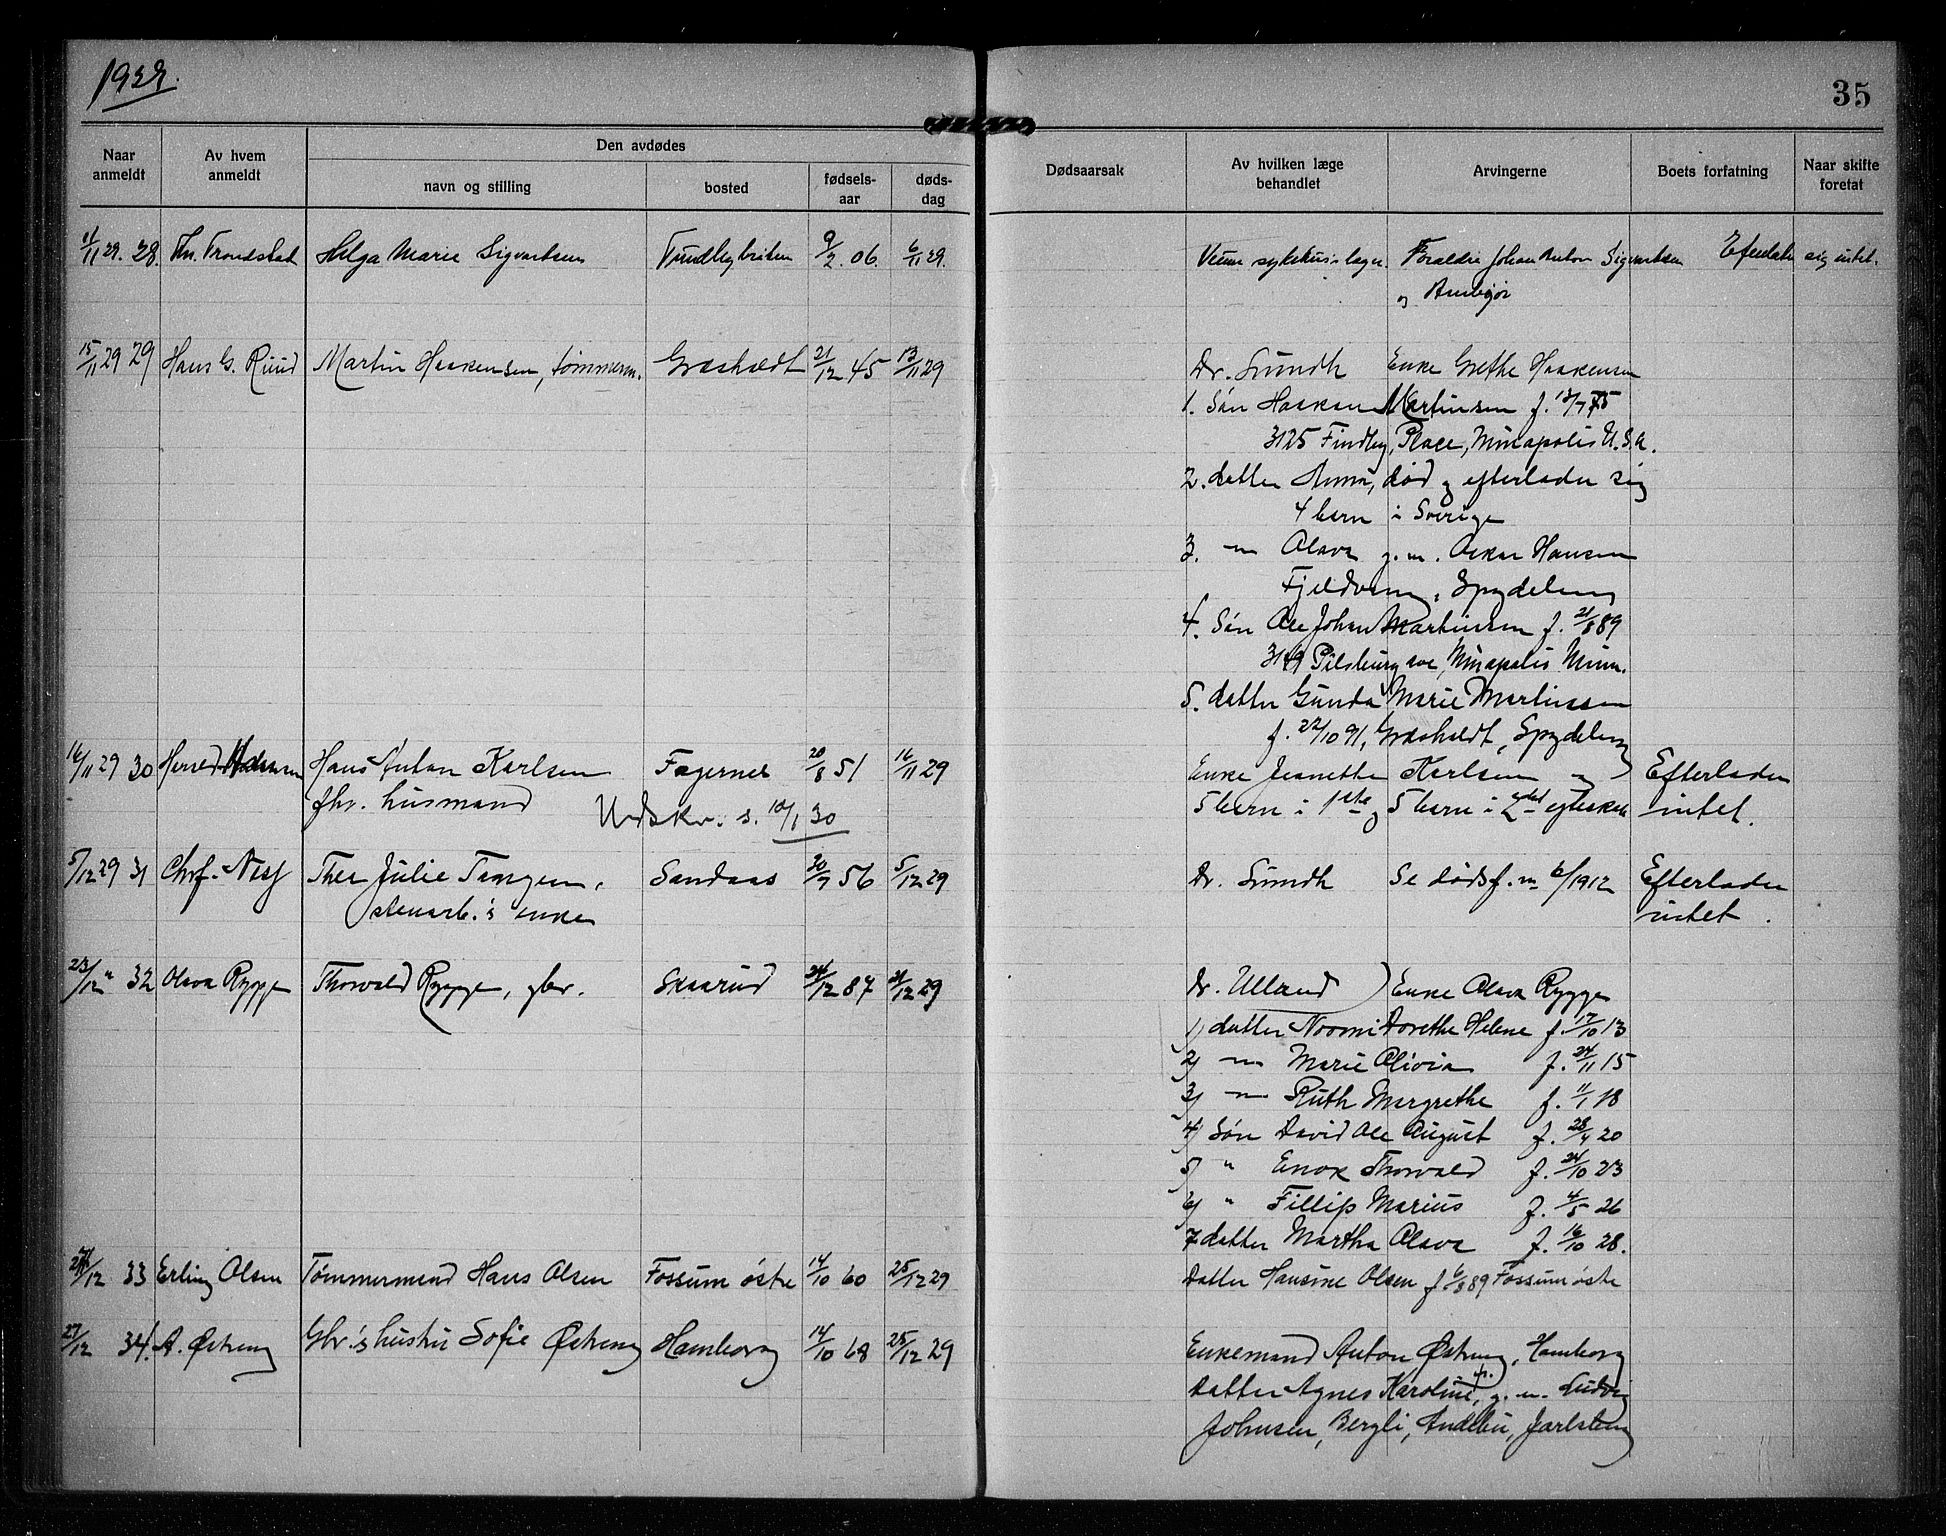 1929.
35
Naar anmeldt
Av hvem anmeldt
Den avdødes
navn og stilling
bosted
fødsels-aar
døds-dag
Dødsaarsak
Av hvilken læge behandlet
Arvingerne
Boets forfatning
Naar skifte foretat
11/11 29. 28. Th. Trondstad Helga Marie Sigvartsen 9/2. 06. 6/11 29. Veum sykehus læger. Foreldre Johan Anton Sigvartsen Efterlater sig intet.
og
15/11 29 29 Hans G. Ruud Martin Haakensen, tømmerm. Græsholdt 21/12 45 13/11 29 Dr. Lundh Enke Grethe Haakensen
1. Søn Haakon Martinsen f. 13/7 75
3125 Findley Place, Minapolis U.S.A.
2. datter Anna, død og efterlader sig
4 barn i Sverige
3. —"— Olava g.m. Oskar Hansen
Fjeldvang, Spydeberg
4. Søn Ole Johan Martinsen f. 21/8 89
3149 Pilsburg ave, Minapolis Minn.
5. datter Gunda Marie Martinsen
f. 22/10 91, Græsholdt, Spydeberg
16/11 29 30 Hans Anton Karlsen Fagernes 20/8 51 16/11 29 Enke Jeanette Karlsen og Efterlader
fhv. husmand Udskr. s. 10/1 30 5 barn i 1ste og 5 barn i 2det egteskab intet.
5/12 29 31 Chrf. Ness Thea Julie Tangen, Sandaas 30/7 56 5/12 29 Dr. Lundh Se dødsf. nr 6/1912 Efterlader
stenarb.'s enke intet.
23/12 " 32 Olava Rygge Thorvald Rygge, gbr. Skaarud 24/12 87 21/12 29 Dr. Ulland ) Enke Olava Rygge
1) datter Noomi Dorethe Helene f. 17/10 13
2) —"— Marie Olivia f. 24/11 15
3) —"— Ruth Margrethe f. 11/1 18
4) Søn David Ole August f. 28/4 20
5) " Enok Thorvald f. 24/10 23
6) " Fillip Marius f. 4/5 26
7 datter Martha Olava f. 16/10 28.
27/12 33 Erling Olsen Tømmermand Hans Olsen Fossum østre 14/10 60 25/12 29 Datter Hansine Olsen f. 6/8 89 Fossum østre
27/12 34. A. Østreng Gbr.'s hustru Sofie Østreng Hamborg 14/10 68 25/12 29 Enkemand Anton Østreng, Hamborg
Datter Agnes Karoline, g.m. Ludvig
Johnsen, Bergli, Andebu, Jarlsberg